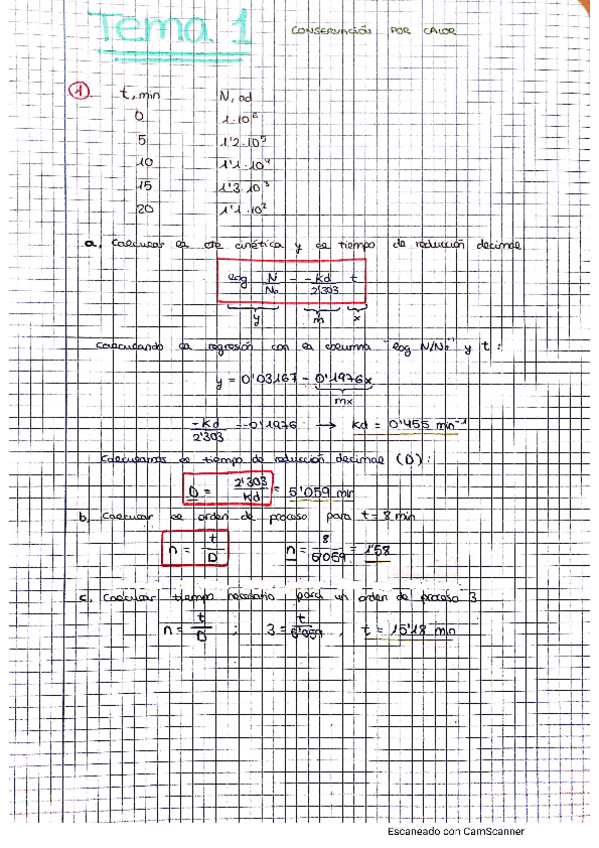 Tema 1 CONSERVACIÓN POR CALOR
1 t, min N, ad
0 1·10⁶
5 1'2·10⁵
10 1'1·10⁴
15 1'3·10³
20 1'1·10²
a. Calcular la cte cinética y el tiempo de reducción decimal
log N/N₀ = -kd/2'303 t
y m x
Calculando la regresión con la columna "log N/N₀" y t:
y = 0'03167 - 0'1976x
mx
-kd/2'303 = -0'1976 → kd = 0'455 min⁻¹
Calculamos el tiempo de reducción decimal (D):
D = 2'303/kd = 5'059 min
b. Calcular el orden de proceso para t = 8 min
n = t/D n = 8/5'059 = 1'58
c. Calcular tiempo necesario para un orden de proceso 3
n = t/D ; 3 = t/5'059 , t = 15'18 min
Escaneado con CamScanner